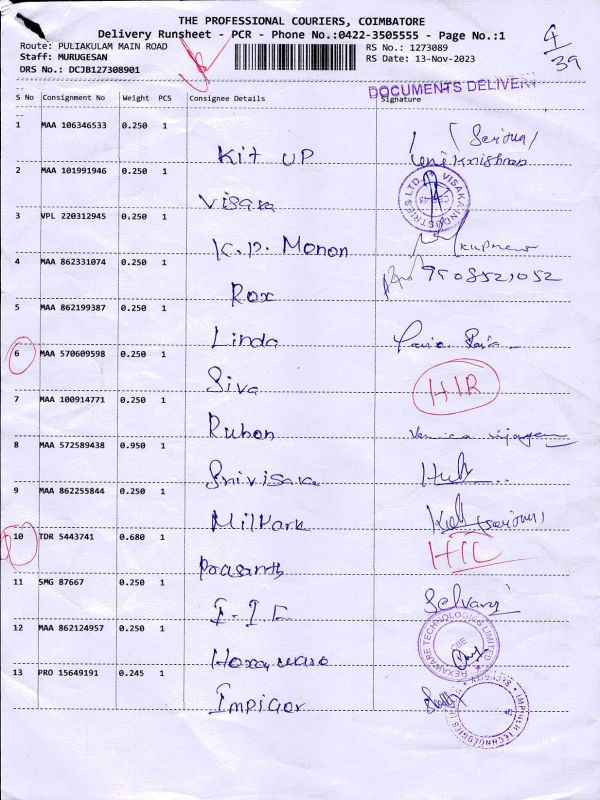 THE PROFESSIONAL COURIERS, COIMBATORE
Delivery Runsheet - PCR - Phone No.:0422-3505555 - Page No.:1
Route: PULIAKULAM MAIN ROAD
Staff: MURUGESAN
DRS No.: DCJB127308901
RS No.: 1273089
RS Date: 13-Nov-2023
4/39
DOCUMENTS DELIVERY
S No Consignment No Weight PCS Consignee Details Signature
1 MAA 106346533 0.250 1
Kit UP
2 MAA 101991946 0.250 1
Visaka
VISAKA INDUSTRIES LTD
3 VPL 220312945 0.250 1
K.P. Monon
4 MAA 862331074 0.250 1
Rox
5 MAA 862199387 0.250 1
Linda
6 MAA 570609598 0.250 1
Siva
7 MAA 100914771 0.250 1
Rubon
8 MAA 572589438 0.950 1
Srivisaka
9 MAA 862255844 0.250 1
Milkark
10 TDR 5443741 0.680 1
Prasanth
11 SMG 87667 0.250 1
Selvaraj
12 MAA 862124957 0.250 1
Hexaware
HEXAWARE TECHNOLOGIES LIMITED
CBE
13 PRO 15649191 0.245 1
Impiger